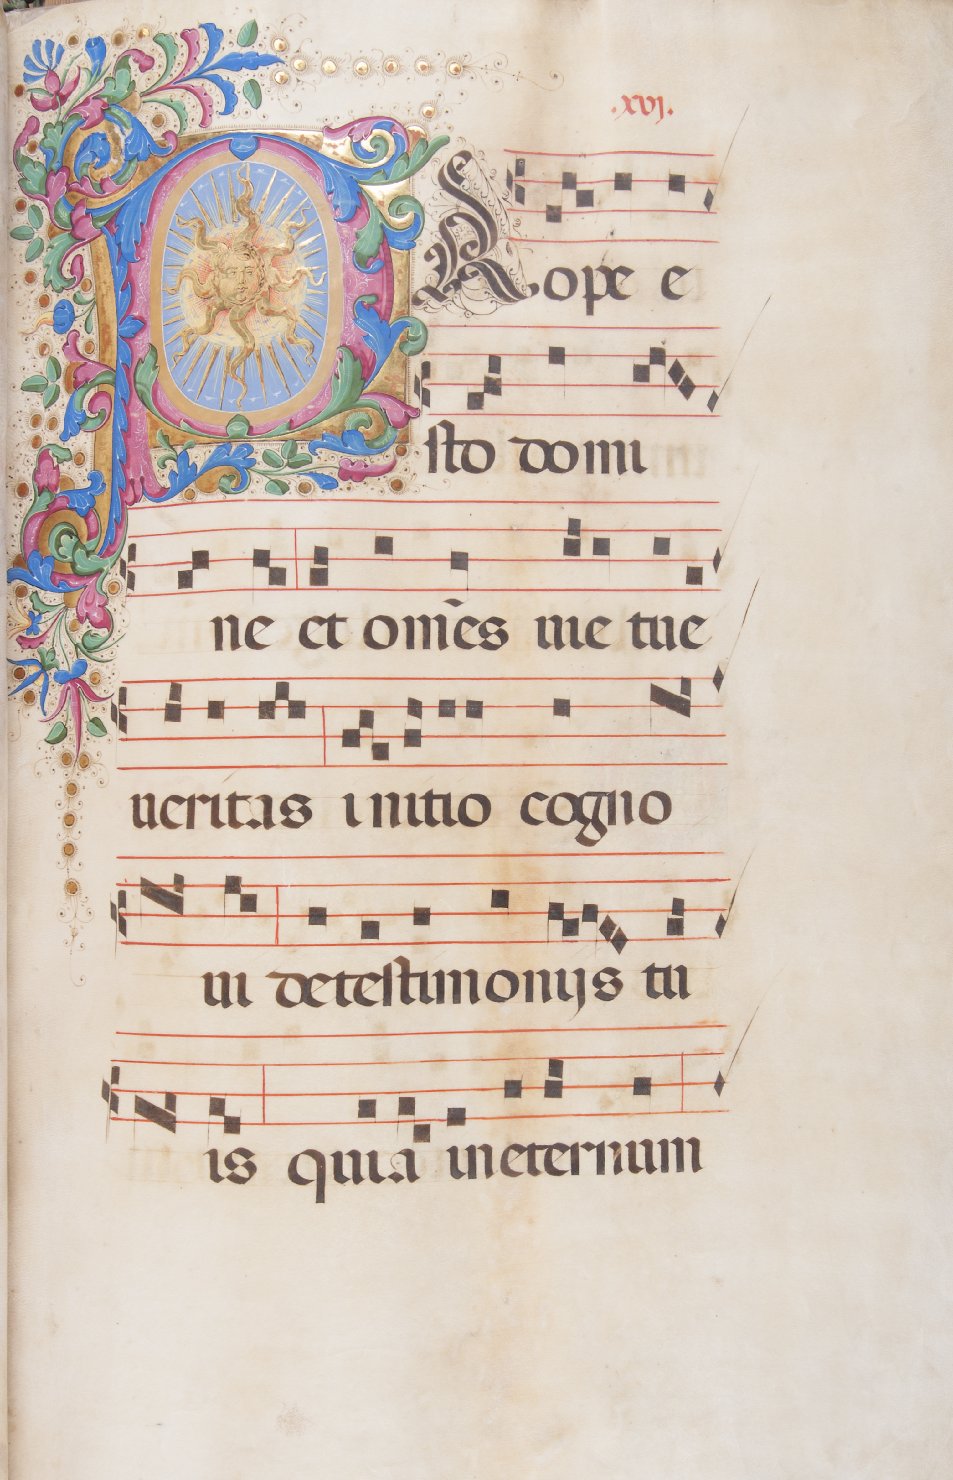 .xvj.
PRope e
sto domi
ne et om̃es uie tue
ueritas initio cogno
ui detestimonijs tu
is quia ineternum